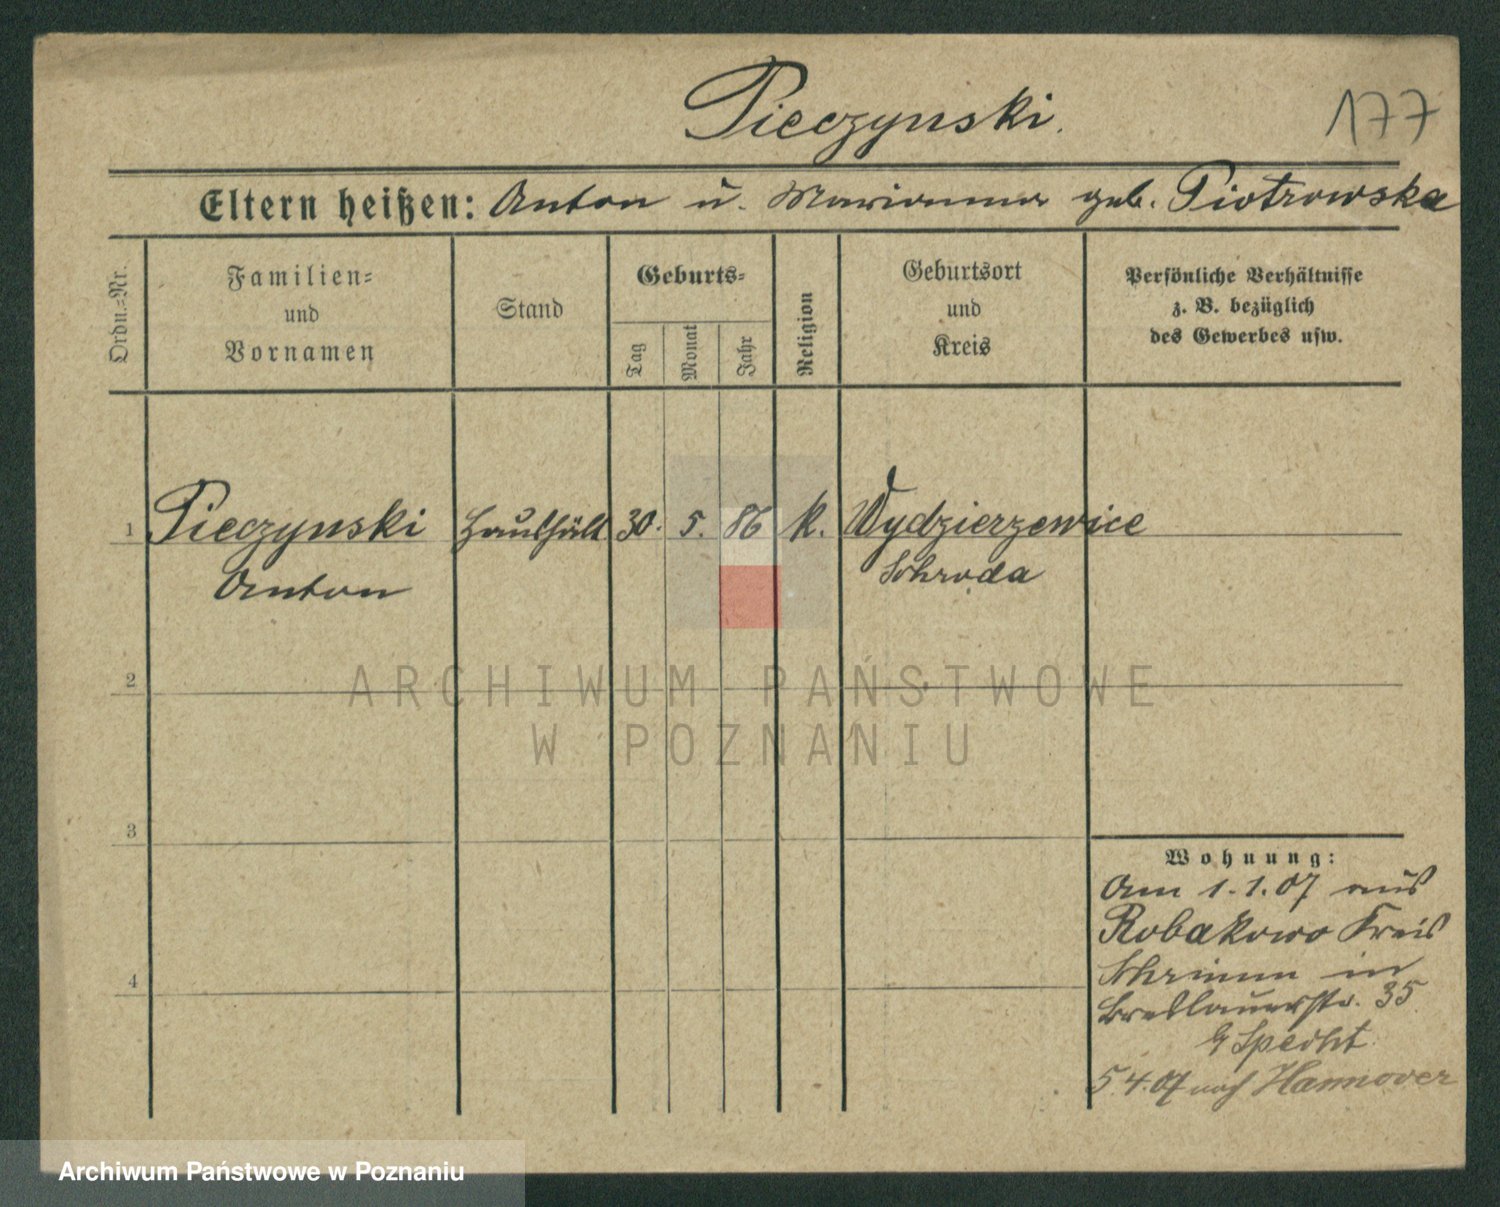 Pieczynski.
177
Eltern heißen: Anton u. Marianna geb. Piotrowska
Ordn.=Nr.
Familien=
und
Vornamen
Stand
Geburts=
Tag
Monat
Jahr
Religion
Geburtsort
und
Kreis
Persönliche Verhältnisse
z. B. bezüglich
des Gewerbes usw.
1 Pieczynski Haushält 30. 5. 86 k. Wydzierzewice
Anton Schroda
2
3
4
Wohnung:
Am 1.1.07 aus
Robakowo Kreis
Schrimm in
Breslauerstr. 35
b/ Specht
5.4.07 nach Hannover
ARCHIWUM PAŃSTWOWE
W POZNANIU
Archiwum Państwowe w Poznaniu